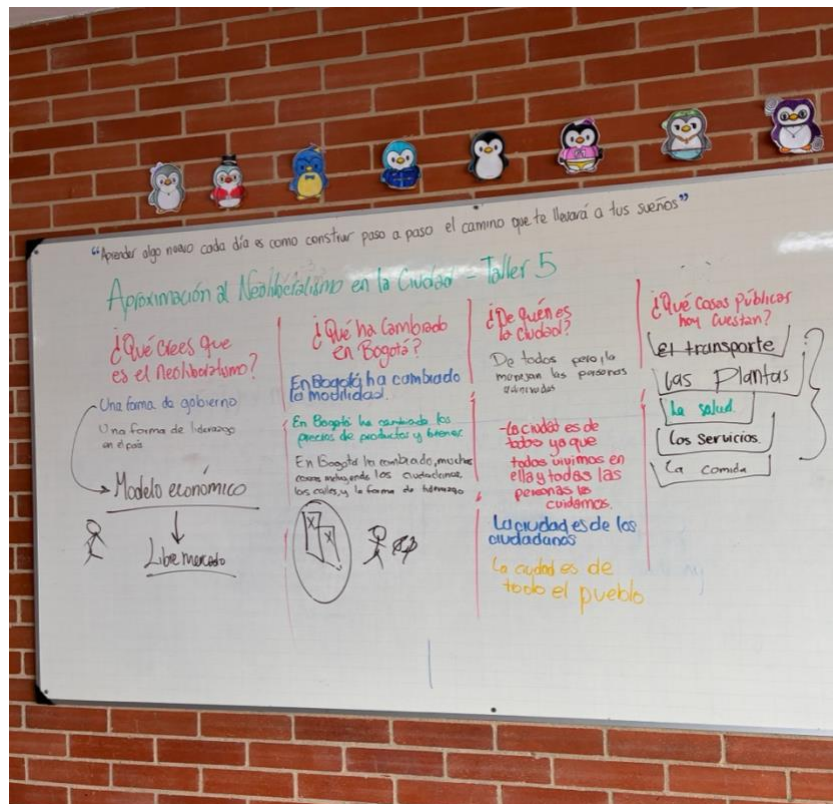 “Aprender algo nuevo cada día es como construir paso a paso el camino que te llevará a tus sueños”
Aproximación al Neoliberalismo en la Ciudad - Taller 5
¿Qué crees que
es el neoliberalismo?
Una forma de gobierno
Una forma de liderazgo
en el país
Modelo económico
Libre mercado
¿Qué ha cambiado
en Bogotá?
En Bogotá ha cambiado
la movilidad.
En Bogotá ha cambiado los
precios de productos y bienes
En Bogotá ha cambiado, muchas
cosas incluyendo los ciudadanos,
las calles, y la forma de liderazgo
X
X
¿De quién es
la ciudad?
De todos pero, la
manejan las personas
adineradas
-La ciudad es de
todos ya que
todos vivimos en
ella y todas las
personas la
cuidamos.
La ciudad es de los
ciudadanos
La ciudad es de
todo el pueblo
¿Qué cosas públicas
hoy cuestan?
el transporte
las Plantas
La salud.
Los servicios.
La comida